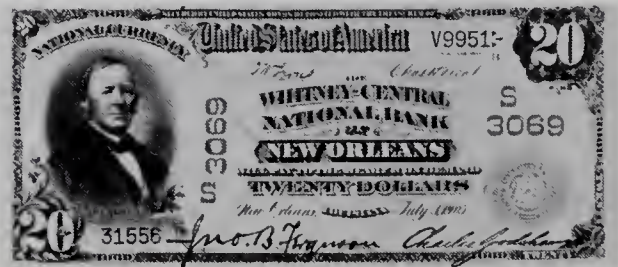 NATIONAL CURRENCY
United States of America V9951
20
THE
WHITNEY-CENTRAL
NATIONAL BANK
OF
NEW ORLEANS
S
3069
S 3069
TWENTY DOLLARS
New Orleans, July 1905
31556 Jno. B. Ferguson Charles Godchaux